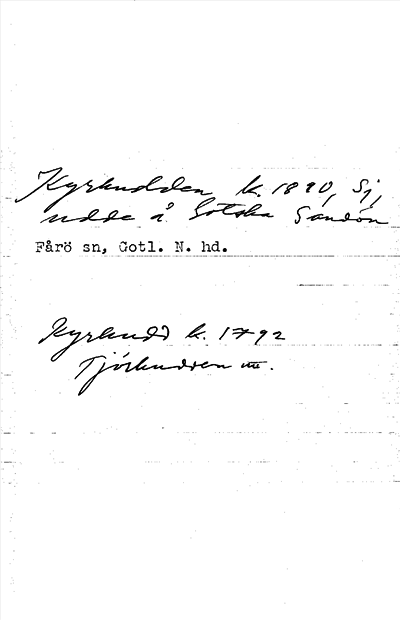 Kyrkudden k. 1890, Sj,
udde å Gotska Sandön
Fårö sn, Gotl. N. hd.
Kyrkudd k. 1792
Tjörkudden